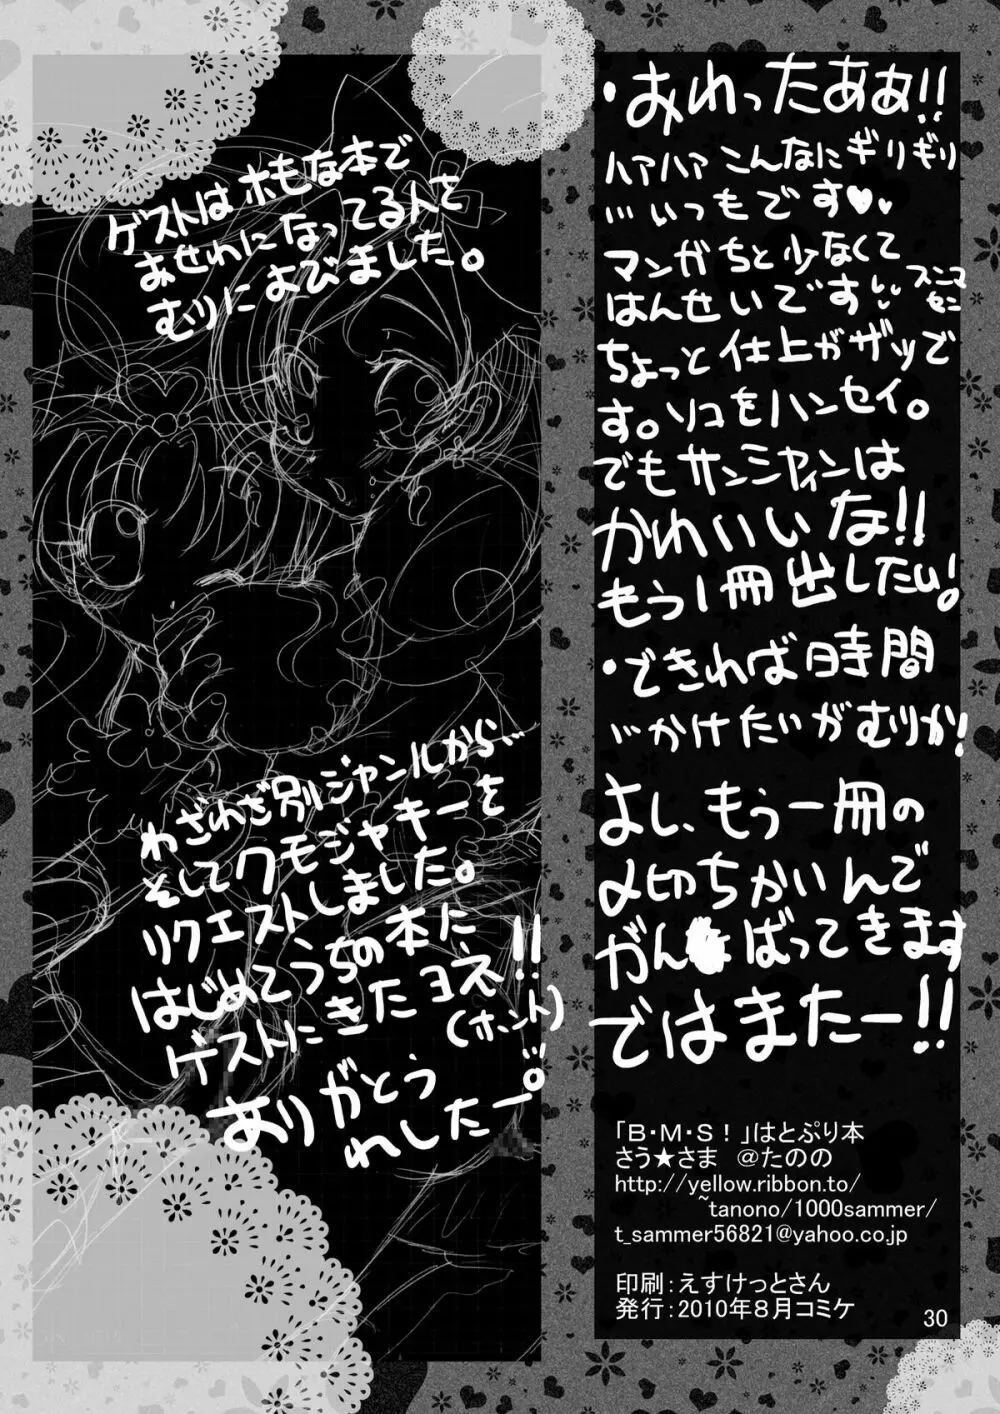 ・おわったあぁ!!
ハァハァ こんなにギリギリ
…いつもです♥♥
マンガちと少なくて
はんせいです
スミマセン
ちょっと仕上がザツで
す。ソコをハンセイ。
でもサンシャインは
かわいいな!!
もう1冊出したい!
・できれば時間
…かけたいがむりか!
よし、もう一冊の
〆切ちかいんで
がんばってきます
ではまたー!!
ゲストはホモな本で
おせわになってる人を
むりによびました。
わざわざ別ジャンルから…
そしてクモジャキーを
リクエストしました。
はじめてうちの本に
ゲストにきたヨネ!!
(ホント)
ありがとう
れしたー。
「B・M・S!」はとぷり本
さう★さま　@たのの
http://yellow.ribbon.to/
~tanono/1000sammer/
t_sammer56821@yahoo.co.jp
印刷:えすけっとさん
発行:2010年8月コミケ
30